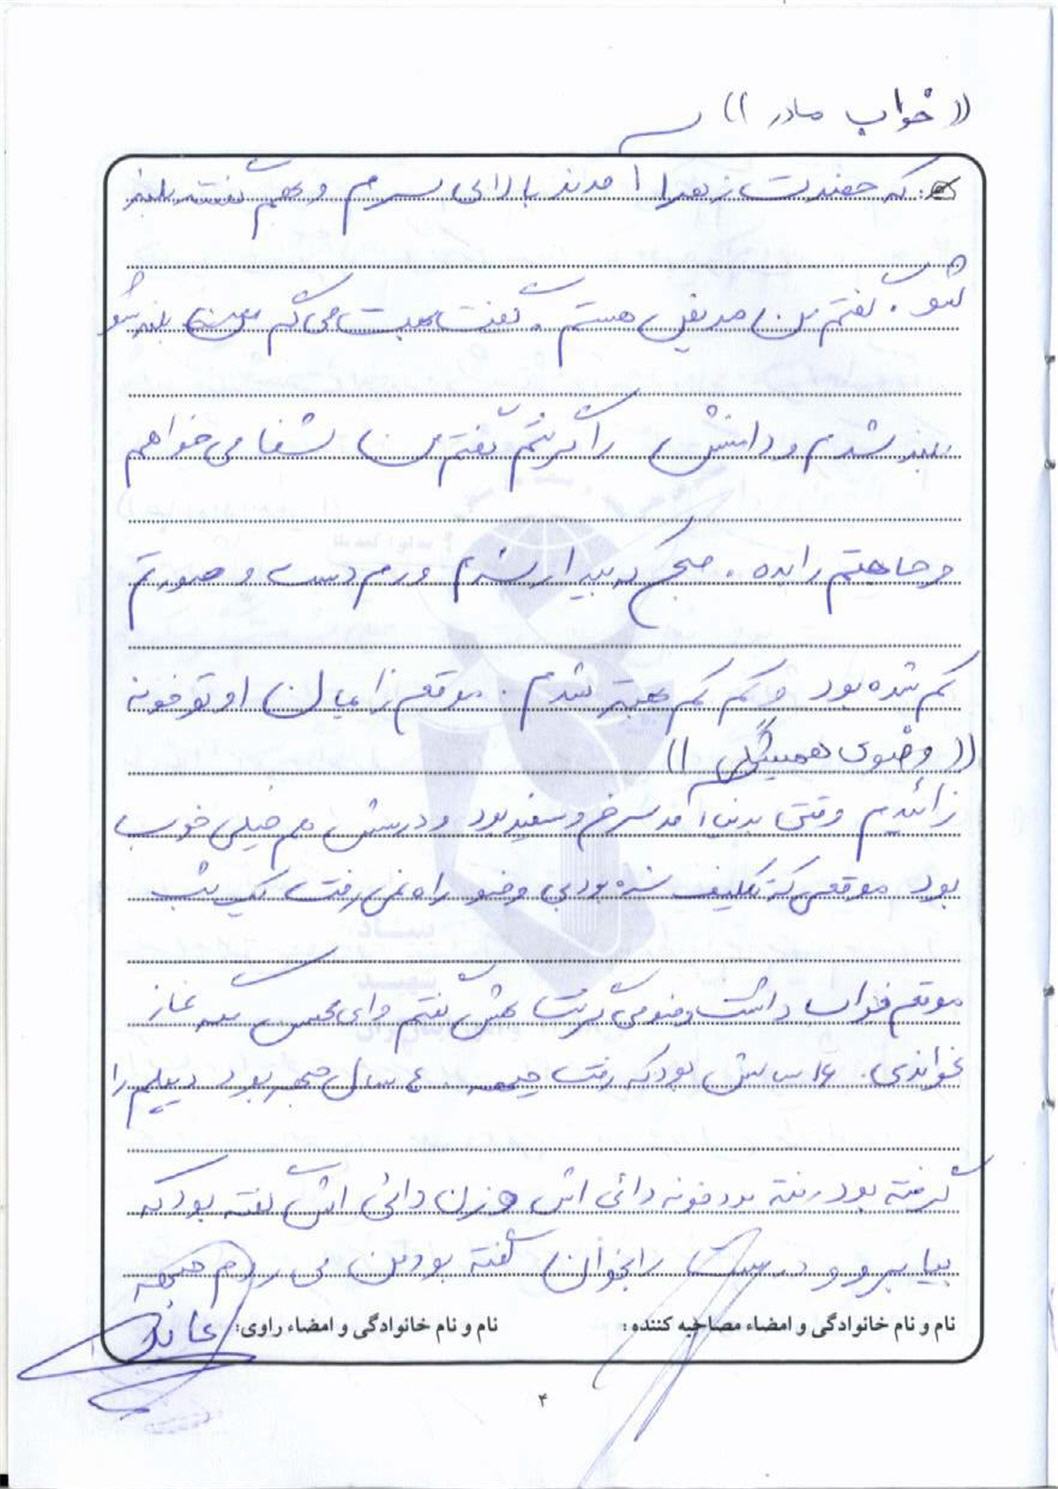 (( خواب مادر ))
که حضرت زهرا آمدند بالای سرم و بهم گفتند بلند
شو. گفتم من مریض هستم. گفت بهت می گم بلند شو
بلند شدم و دامنش را گرفتم گفتم من شفا می خواهم
و حاجتم را بده. صبح که بیدار شدم ورم دست و صورتم
کم شده بود و کم کم بهتر شدم. موقع زایمان او تو خونه
(( وضوی همیشگی ))
زائیدم وقتی بدنیا آمد سرخ و سفید بود و درسش هم خیلی خوب
بود موقعی که تکلیف شده بود بی وضو راه نمی رفت یک شب
موقع خواب داشت وضو می گرفت بهش گفتم وای محسن نماز
نخواندی. ۱۶ سالش بود که رفت جبهه. ۴ سال جبهه بود دیپلم را
گرفته بود رفته بود خونه دائی اش و زن دائی اش گفته بود که
بیا برو و درست را بخوان گفته بود من می روم جبهه
نام و نام خانوادگی و امضاء مصاحبه کننده :
نام و نام خانوادگی و امضاء راوی:
۴